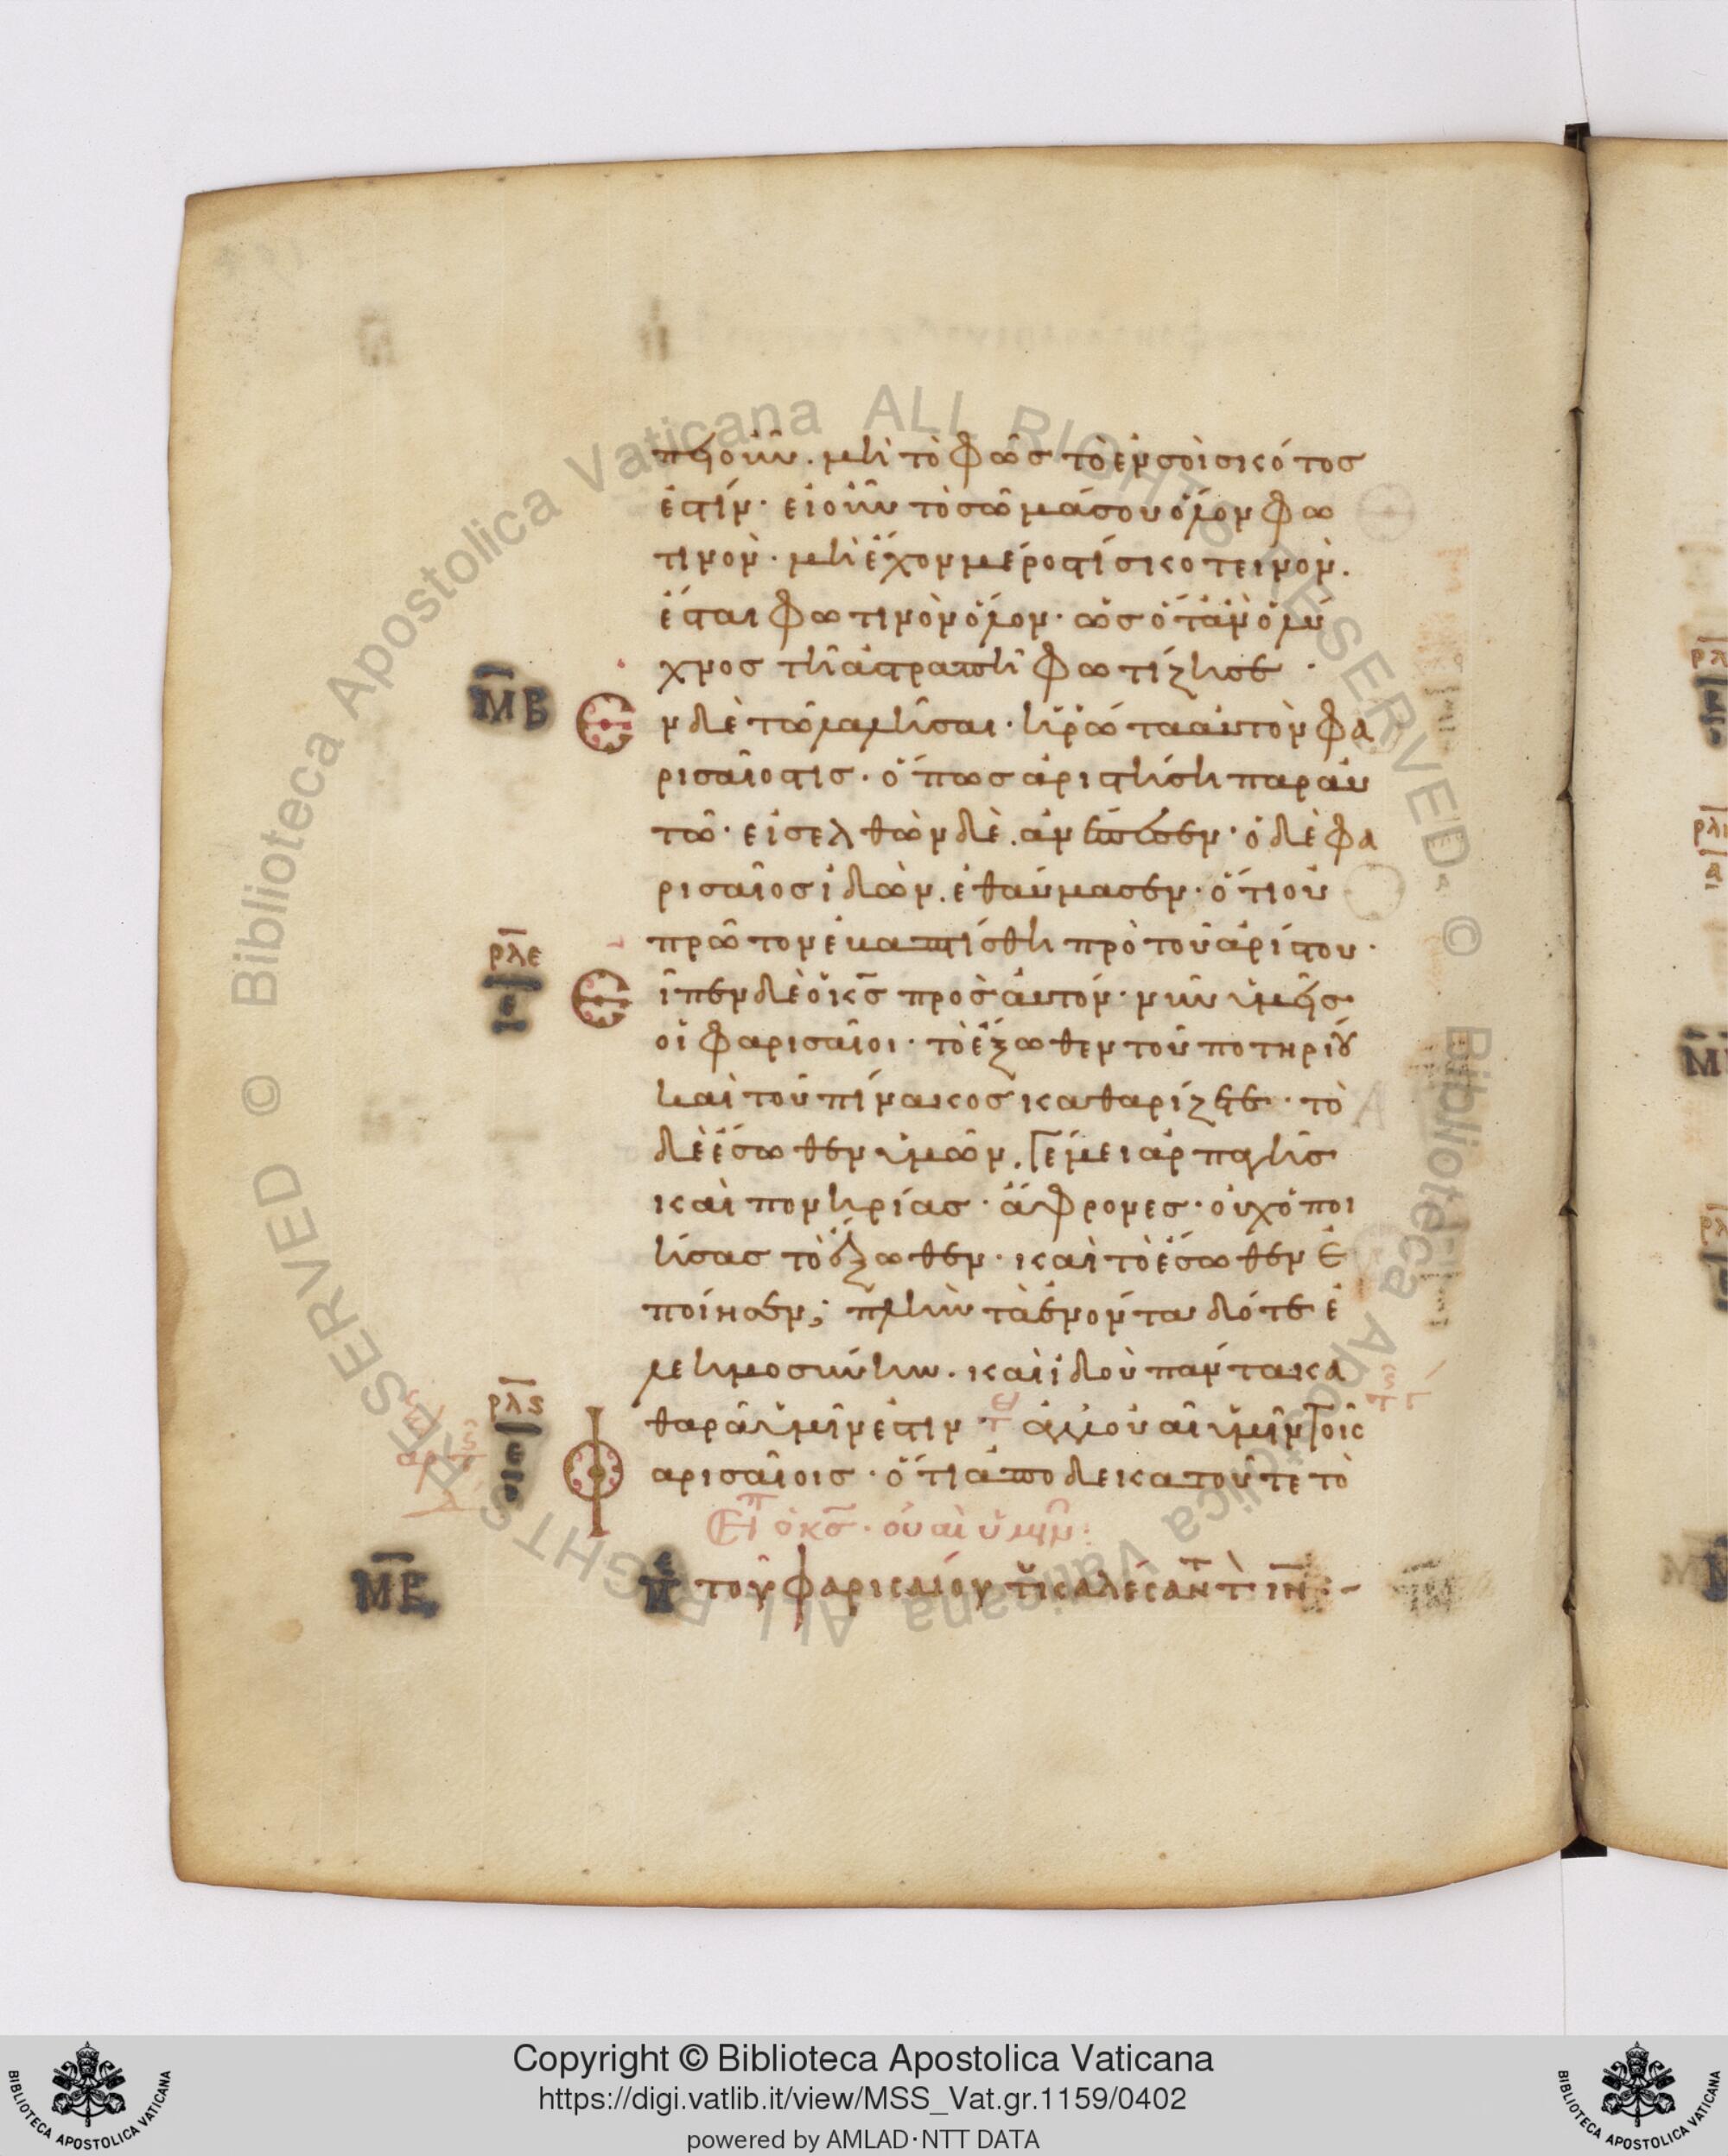 πει οὖν. μὴ τὸ φῶσ τὸ ἐν σοὶ σκότοσ
ἐστίν· εἰ οὖν τὸ σῶμά σου ὅλον φω
τινον· μὴ ἔχον μέροσ τί σκοτεινον.
ἔσται φωτινὸν ὅλον· ὡσ ὅταν ὁ λύ
χνοσ τῆ ἀστραπῆ φωτίζη σε ·
ΜΒ
Ε
ν δὲ τῶ λαλῆσαι· ἠρώτα αὐτὸν φα
ρισαῖοσ τισ· ὅπωσ ἀριστήση παρ αὐ
τῶ· εἰσελθὼν δὲ. ἀνέπεσεν· ὁ δὲ φα
ρισαῖοσ ἰδὼν. ἐθαύμασεν· ὅτι οὐ
πρῶτον ἐβαπτίσθη πρὸ τοῦ ἀρίστου·
ρλε
ε
Ε
ἶπεν δὲ ὁ κσ πρὸσ αὐτόν· νῦν ὑμεῖσ
οἱ φαρισαῖοι· τὸ ἔξωθεν τοῦ ποτηρίου
καὶ τοῦ πίνακοσ καθαρίζετε· τὸ
δὲ ἔσωθεν ὑμῶν, γέμει ἁρπαγῆσ
καὶ πονηρίασ· ἄφρονεσ· οὐχ ὁ ποι
ήσασ τὸ ἔξωθεν· καὶ τὸ ἔσωθεν ἐ
ποίησεν; πλὴν τὰ ἐνοντα δότε ἐ
λεημοσύνην. καὶ ἰδοὺ πάντα κα
ρλς
ε
θαρὰ ὑμῖν ἐστιν · ἀλλ οὐαὶ ὑμῖν τοῖσ
Φ
αρισαίοισ· ὅτι ἀποδεκατοῦτε τὸ
Εἶπ ὁ κσ· οὐαὶ ὑμῖν:
ΜΒ
τοῦ φαρισαίου τοῦ καλέσαντ τ ιν :-
Copyright © Biblioteca Apostolica Vaticana
https://digi.vatlib.it/view/MSS_Vat.gr.1159/0402
powered by AMLAD·NTT DATA
BIBLIOTECA APOSTOLICA VATICANA
BIBLIOTECA APOSTOLICA VATICANA
© Biblioteca Apostolica Vaticana ALL RIGHTS RESERVED
© Biblioteca Apostolica Vaticana ALL RIGHTS RESERVED